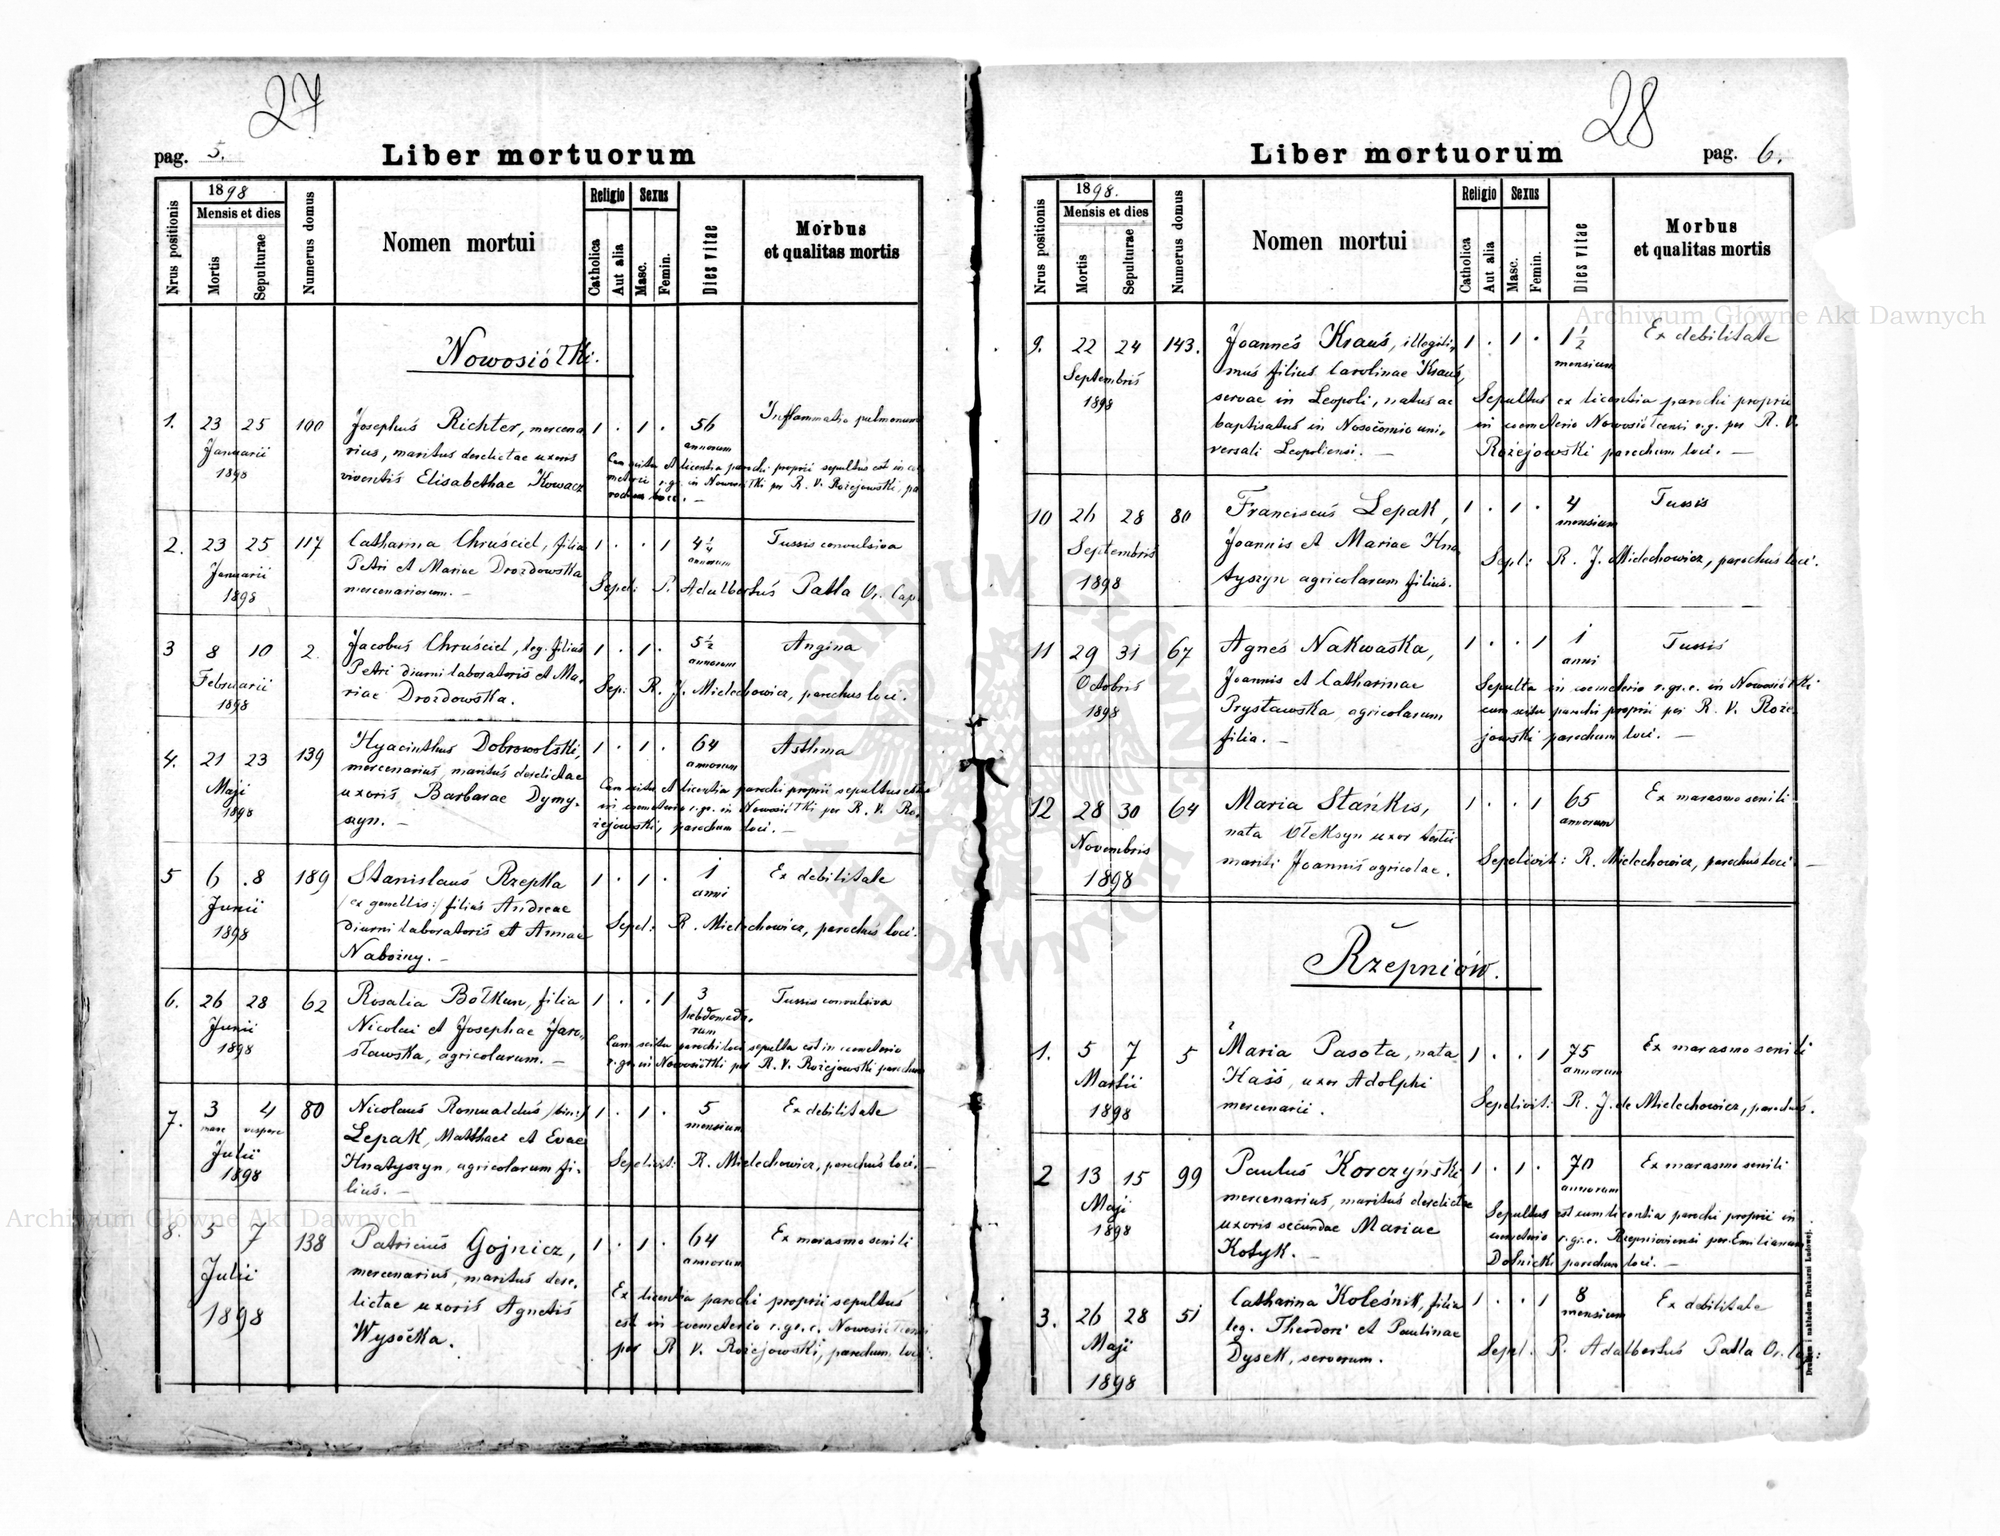 27
pag. 5.
Liber mortuorum
Nrus positionis
1898
Mensis et dies
Mortis
Sepulturae
Numerus domus
Nomen mortui
Religio
Catholica
Aut alia
Sexus
Masc.
Femin.
Dies vitae
Morbus
et qualitas mortis
Nowosiółki.
1. 23 25 100 Josephus Richter, mercena 1 . 1 . 56 Inflammatio pulmonum
Januarii rius, maritus derelictae uxoris annorum
1898 viventis Elisabethae Kowacz
Cum scitu et licentia parochi proprii sepultus est in coe
meterio r.gr. in Nowosiółki per R. V. Rożejowski, pa
rochum loci. —
2. 23 25 117 Catharina Chruściel, filia 1 . . 1 4 1/4 Tussis convulsiva
Januarii Petri et Mariae Drozdowska annorum
1898 mercenariorum. —
Sepel: P. Adalbertus Patla Or. Cap.
3 8 10 2. Jacobus Chruściel, leg. filius 1 . 1 . 5 1/2 Angina
Februarii Petri diurni laboratoris et Ma- annorum
1898 riae Drozdowska.
Sep: R. J. Mielechowicz, parochus loci.
4. 21 23 139 Hyacinthus Dobrowolski, 1 . 1 . 64 Asthma
Maji mercenarius, maritus derelictae annorum
1898 uxoris Barbarae Dymy-
szyn. —
Cum scitu et licentia parochi proprii sepultus est
in coemeterio r.gr. in Nowosiółki per R. V. Ro-
żejowski, parochum loci. —
5 6 .8 189 Stanislaus Rzepka 1 . 1 . 1 Ex debilitate
Junii /:ex gemellis:/ filius Andreae anni
1898 diurni laboratoris et Annae
Nabożny. —
Sepel: R. Mielechowicz, parochus loci.
6. 26 28 62 Rosalia Bołkun, filia 1 . . 1 3 Tussis convulsiva
Junii Nicolai et Josephae Jaro- hebdomada-
1898 sławska, agricolarum. — rum
Cum scitu parochi loci sepulta est in coemeterio
r.gr. in Nowosiółki per R. V. Rożejowski parochum
7. 3 4 80 Nicolaus Romualdus /:bin:/ 1 . 1 . 5 Ex debilitate
mane vespere Lepak, Matthaei et Evae mensium
Julii Hnatyszyn, agricolarum fi-
1898 lius. —
Sepelivit: R. Mielechowicz, parochus loci. —
8. 5 7 138 Patricius Gojnicz, 1 . 1 . 64 Ex marasmo senili
Julii mercenarius, maritus dere- annorum
1898 lictae uxoris Agnetis
Wysočka.
Ex licentia parochi proprii sepultus
est in coemeterio r.gr.c. Nowosiółcensi
per R. V. Rożejowski, parochum loci.
28
Liber mortuorum
pag. 6.
Nrus positionis
1898.
Mensis et dies
Mortis
Sepulturae
Numerus domus
Nomen mortui
Religio
Catholica
Aut alia
Sexus
Masc.
Femin.
Dies vitae
Morbus
et qualitas mortis
9. 22 24 143. Joannes Kraus, illegiti- 1 . 1 . 1 1/2 Ex debilitate
Septembris mus filius Carolinae Kraus, mensium
1898 servae in Leopoli, natus ac
baptisatus in Nosocomio uni-
versali Leopoliensi. —
Sepultus ex licentia parochi proprii
in coemeterio Nowosiółcensi r.g. per R. V.
Rożejowski parochum loci. —
10 26 28 80 Franciscus Lepak, 1 . 1 . 4 Tussis
Septembris Joannis et Mariae Hna mensium
1898 tyszyn agricolarum filius.
Sepl: R. J. Mielechowicz, parochus loci.
11 29 31 67 Agnes Nakwaska, 1 . . 1 1 Tussis
Octobris Joannis et Catharinae anni
1898 Prystawska, agricolarum
filia. —
Sepulta in coemeterio r.gr.c. in Nowosiółki
cum scitu parochi proprii per R. V. Roże-
jowski parochum loci. —
12 28 30 64 Maria Stańkis, 1 . . 1 65 Ex marasmo senili
Novembris nata Ołeksyn uxor tertii annorum
1898 mariti Joannis agricolae.
Sepelivit: R. Mielechowicz, parochus loci —
Rzepniów.
1. 5 7 5 Maria Pasota, nata 1 . . 1 75 Ex marasmo senili
Martii Hass, uxor Adolphi annorum
1898 mercenarii.
Sepelivit: R. J. de Mielechowicz, parochus.
2 13 15 99 Paulus Korczyński 1 . 1 . 70 Ex marasmo senili
Maji mercenarius, maritus derelictae annorum
1898 uxoris secundae Mariae
Kotyk. —
Sepultus est cum licentia parochi proprii in
coemeterio r.gr.c. Rzepnioviensi per Emilianum
Dolnicki parochum loci. —
3. 26 28 51 Catharina Koleśnik, filia 1 . . 1 8 Ex debilitate
Maji leg. Theodori et Paulinae mensium
1898 Dysek, servorum.
Sepel: P. Adalbertus Patla Or. Cap:
Drukiem i nakładem Drukarni Ludowej.
Archiwum Główne Akt Dawnych
Archiwum Główne Akt Dawnych
ARCHIWUM GŁÓWNE AKT DAWNYCH